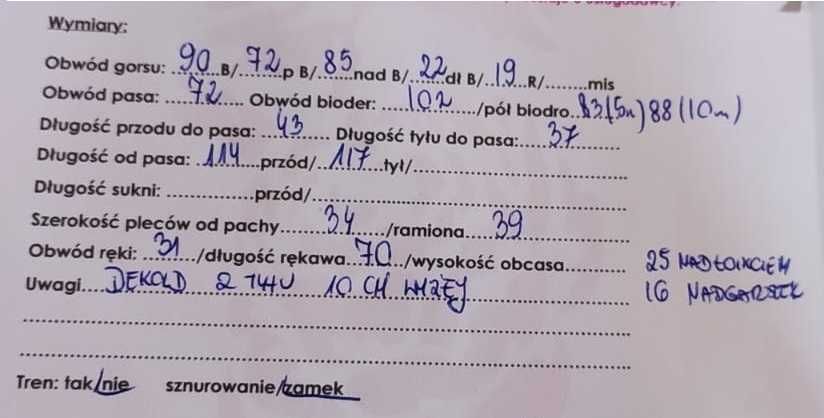 Wymiary:
Obwód gorsu: 90 B/ 72 p B/ 85 nad B/ 22 dł B/ 19 R/........mis
Obwód pasa: 72 Obwód bioder: 102 /pół biodro 83 (5m) 88 (10m)
Długość przodu do pasa: 43 Długość tyłu do pasa: 37
Długość od pasa: 114 przód/ 117 tył/
Długość sukni: ...............przód/
Szerokość pleców od pachy 34 /ramiona 39
Obwód ręki: 31 /długość rękawa 70 /wysokość obcasa........... 25 NAD ŁOKCIEM
Uwagi DEKOLD Z TYŁU 10 CM WYŻEJ 16 NADGARSTEK
Tren: tak/nie sznurowanie/zamek